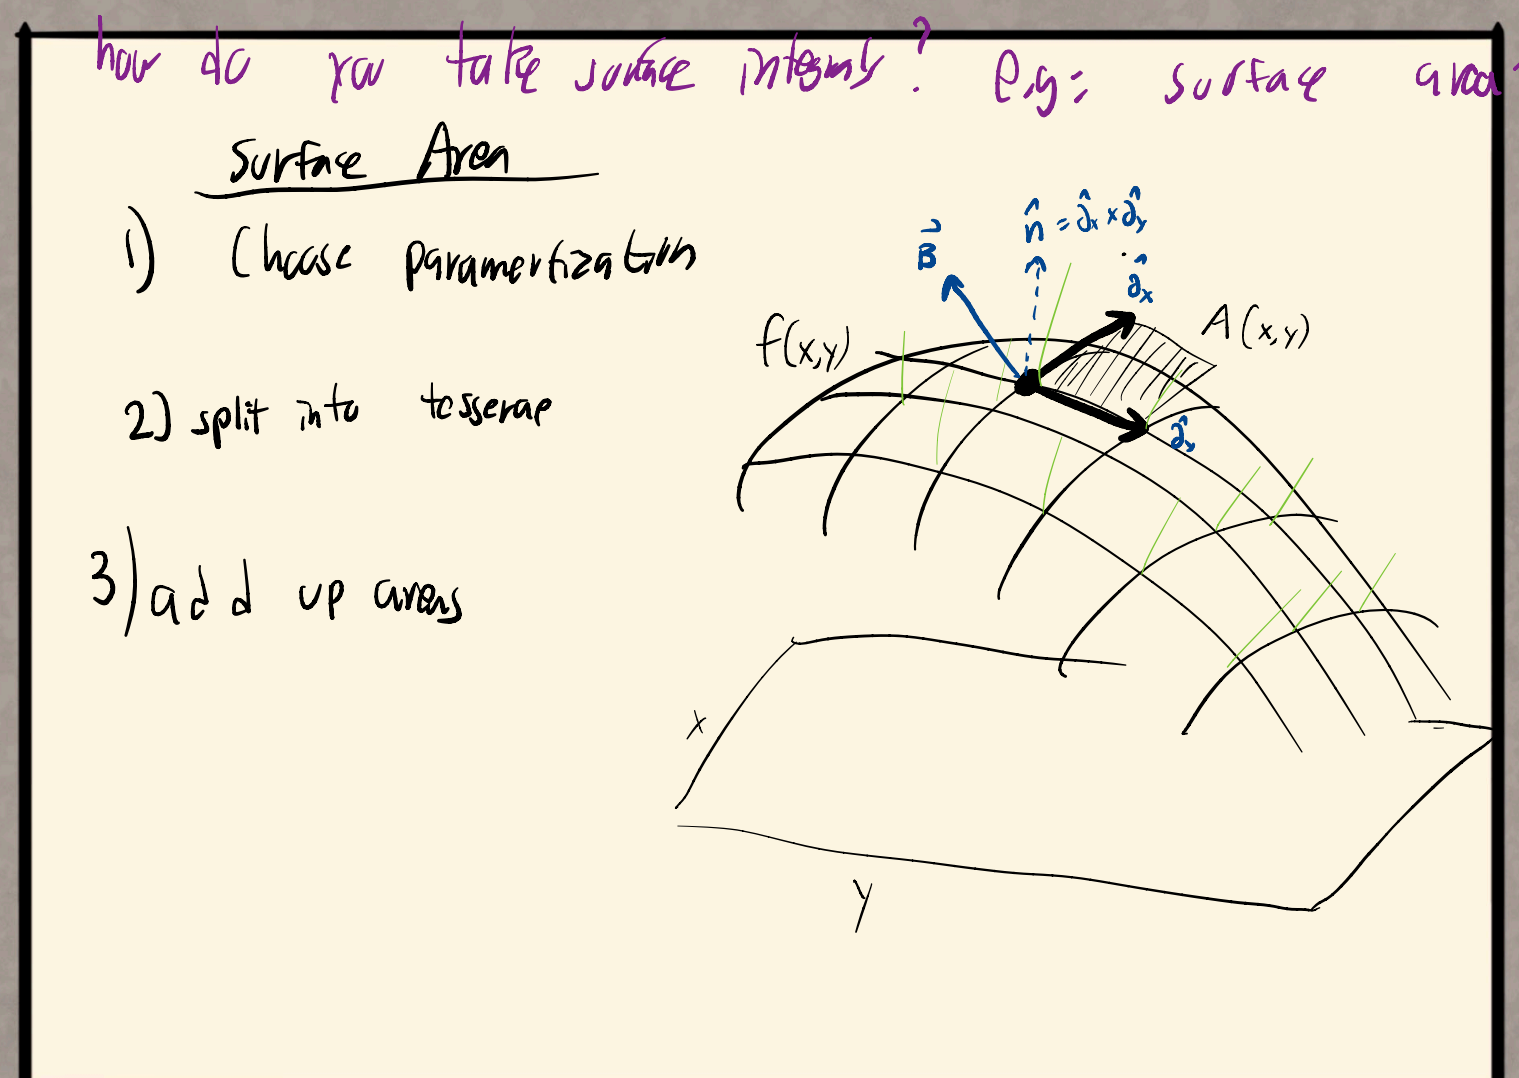 how do you take surface integrals? e.g: surface area?
Surface Area
1) Choose paramertization
2) split into tesserae
3) add up areas
B⃗
n̂ = ∂̂x × ∂̂y
∂̂x
f(x,y)
A(x,y)
∂̂y
x
y